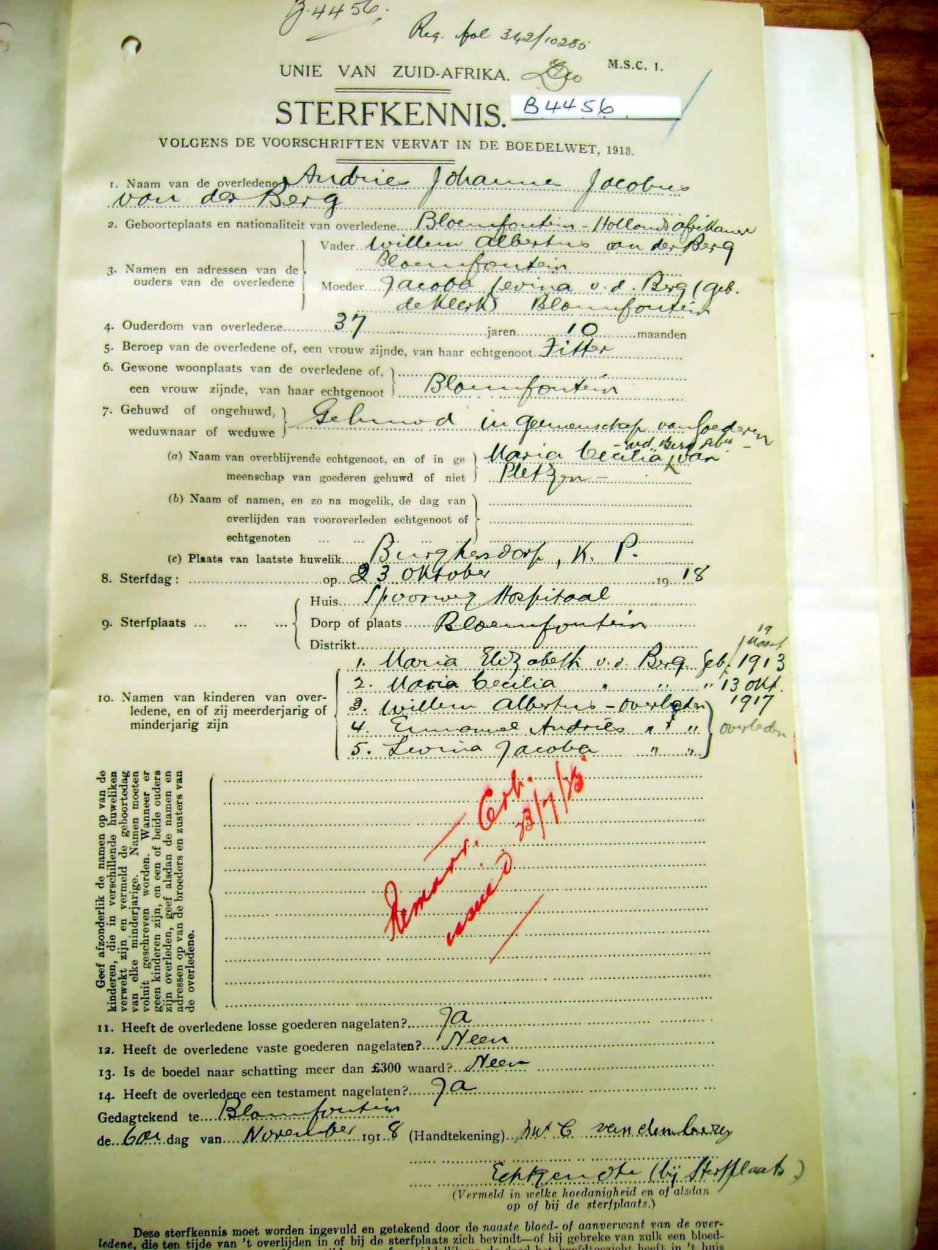 B.4456.
Reg. fol 342/10285
M.S.C. 1.
UNIE VAN ZUID-AFRIKA.
STERFKENNIS.
B4456
VOLGENS DE VOORSCHRIFTEN VERVAT IN DE BOEDELWET, 1913.
1. Naam van de overledene Andries Johannes Jacobus
van der Berg
2. Geboorteplaats en nationaliteit van overledene Bloemfontein - Hollands afrikaner
Vader Willem Albertus van der Berg
Bloemfontein
3. Namen en adressen van de
ouders van de overledene
Moeder Jacoba Levina v. d. Berg (geb.
de Klerk Bloemfontein
4. Ouderdom van overledene 37 jaren 10 maanden
5. Beroep van de overledene of, een vrouw zijnde, van haar echtgenoot Fitter
6. Gewone woonplaats van de overledene of,
een vrouw zijnde, van haar echtgenoot Bloemfontein
7. Gehuwd of ongehuwd,
weduwnaar of weduwe
Gehuwd in gemeenschap van Goederen
(a) Naam van overblijvende echtgenoot, en of in ge
meenschap van goederen gehuwd of niet
Maria Cecilia van
Pletzen -
(b) Naam of namen, en zo na mogelik, de dag van
overlijden van vooroverleden echtgenoot of
echtgenoten ... ... ... ...
(c) Plaats van laatste huwelik Burghersdorp, K. P.
8. Sterfdag: op 23 Oktober 1918
Huis Spoorweg Hospitaal
9. Sterfplaats ... ... ...
Dorp of plaats Bloemfontein
Distrikt
19 Maart
1. Maria Elizabeth v. d. Berg geb. 1913
2. Maria Cecilia " " " 13 Okt.
1917
10. Namen van kinderen van over-
ledene, en of zij meerderjarig of
minderjarig zijn
3. Willem Albertus - overleden
4. Emmanuel Andries " "
overleden
5. Levina Jacoba " "
Geef afzonderlik de namen op van de
kinderen, die in verschillende huweliken
verwekt zijn en vermeld de geboortedag
van elke minderjarige. Namen moeten
voluit geschreven worden. Wanneer er
geen kinderen zijn, en een of beide ouders
zijn overleden, geef alsdan de namen en
adressen op van de broeders en zusters van
de overledene.
Remarr. Cert.
issued 23/7/25
11. Heeft de overledene losse goederen nagelaten? Ja
12. Heeft de overledene vaste goederen nagelaten? Neen
13. Is de boedel naar schatting meer dan £300 waard? Neen
14. Heeft de overledene een testament nagelaten? Ja
Gedagtekend te Bloemfontein
de 6de dag van November 1918 (Handtekening) C van den berg
Echtgenote (bij Sterfplaats)
(Vermeld in welke hoedanigheid en of alsdan
op of bij de sterfplaats.)
Deze sterfkennis moet worden ingevuld en getekend door de naaste bloed- of aanverwant van de over-
ledene, die ten tijde van 't overlijden in of bij de sterfplaats zich bevindt—of bij gebreke van zulk een bloed-